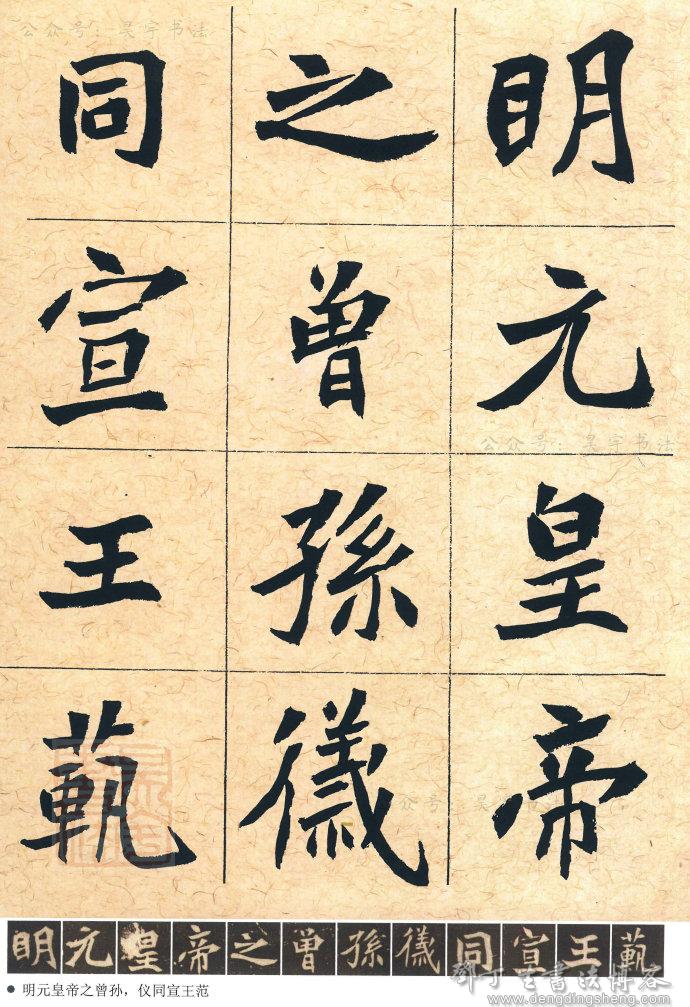 公众号：昊宇书法
明元皇帝
之曾孫儀
同宣王範
公众号：昊宇书法
公众号：昊宇
明元皇帝之曾孫儀同宣王範
● 明元皇帝之曾孙，仪同宣王范
邓丁生書法博客
www.dengdingsheng.com